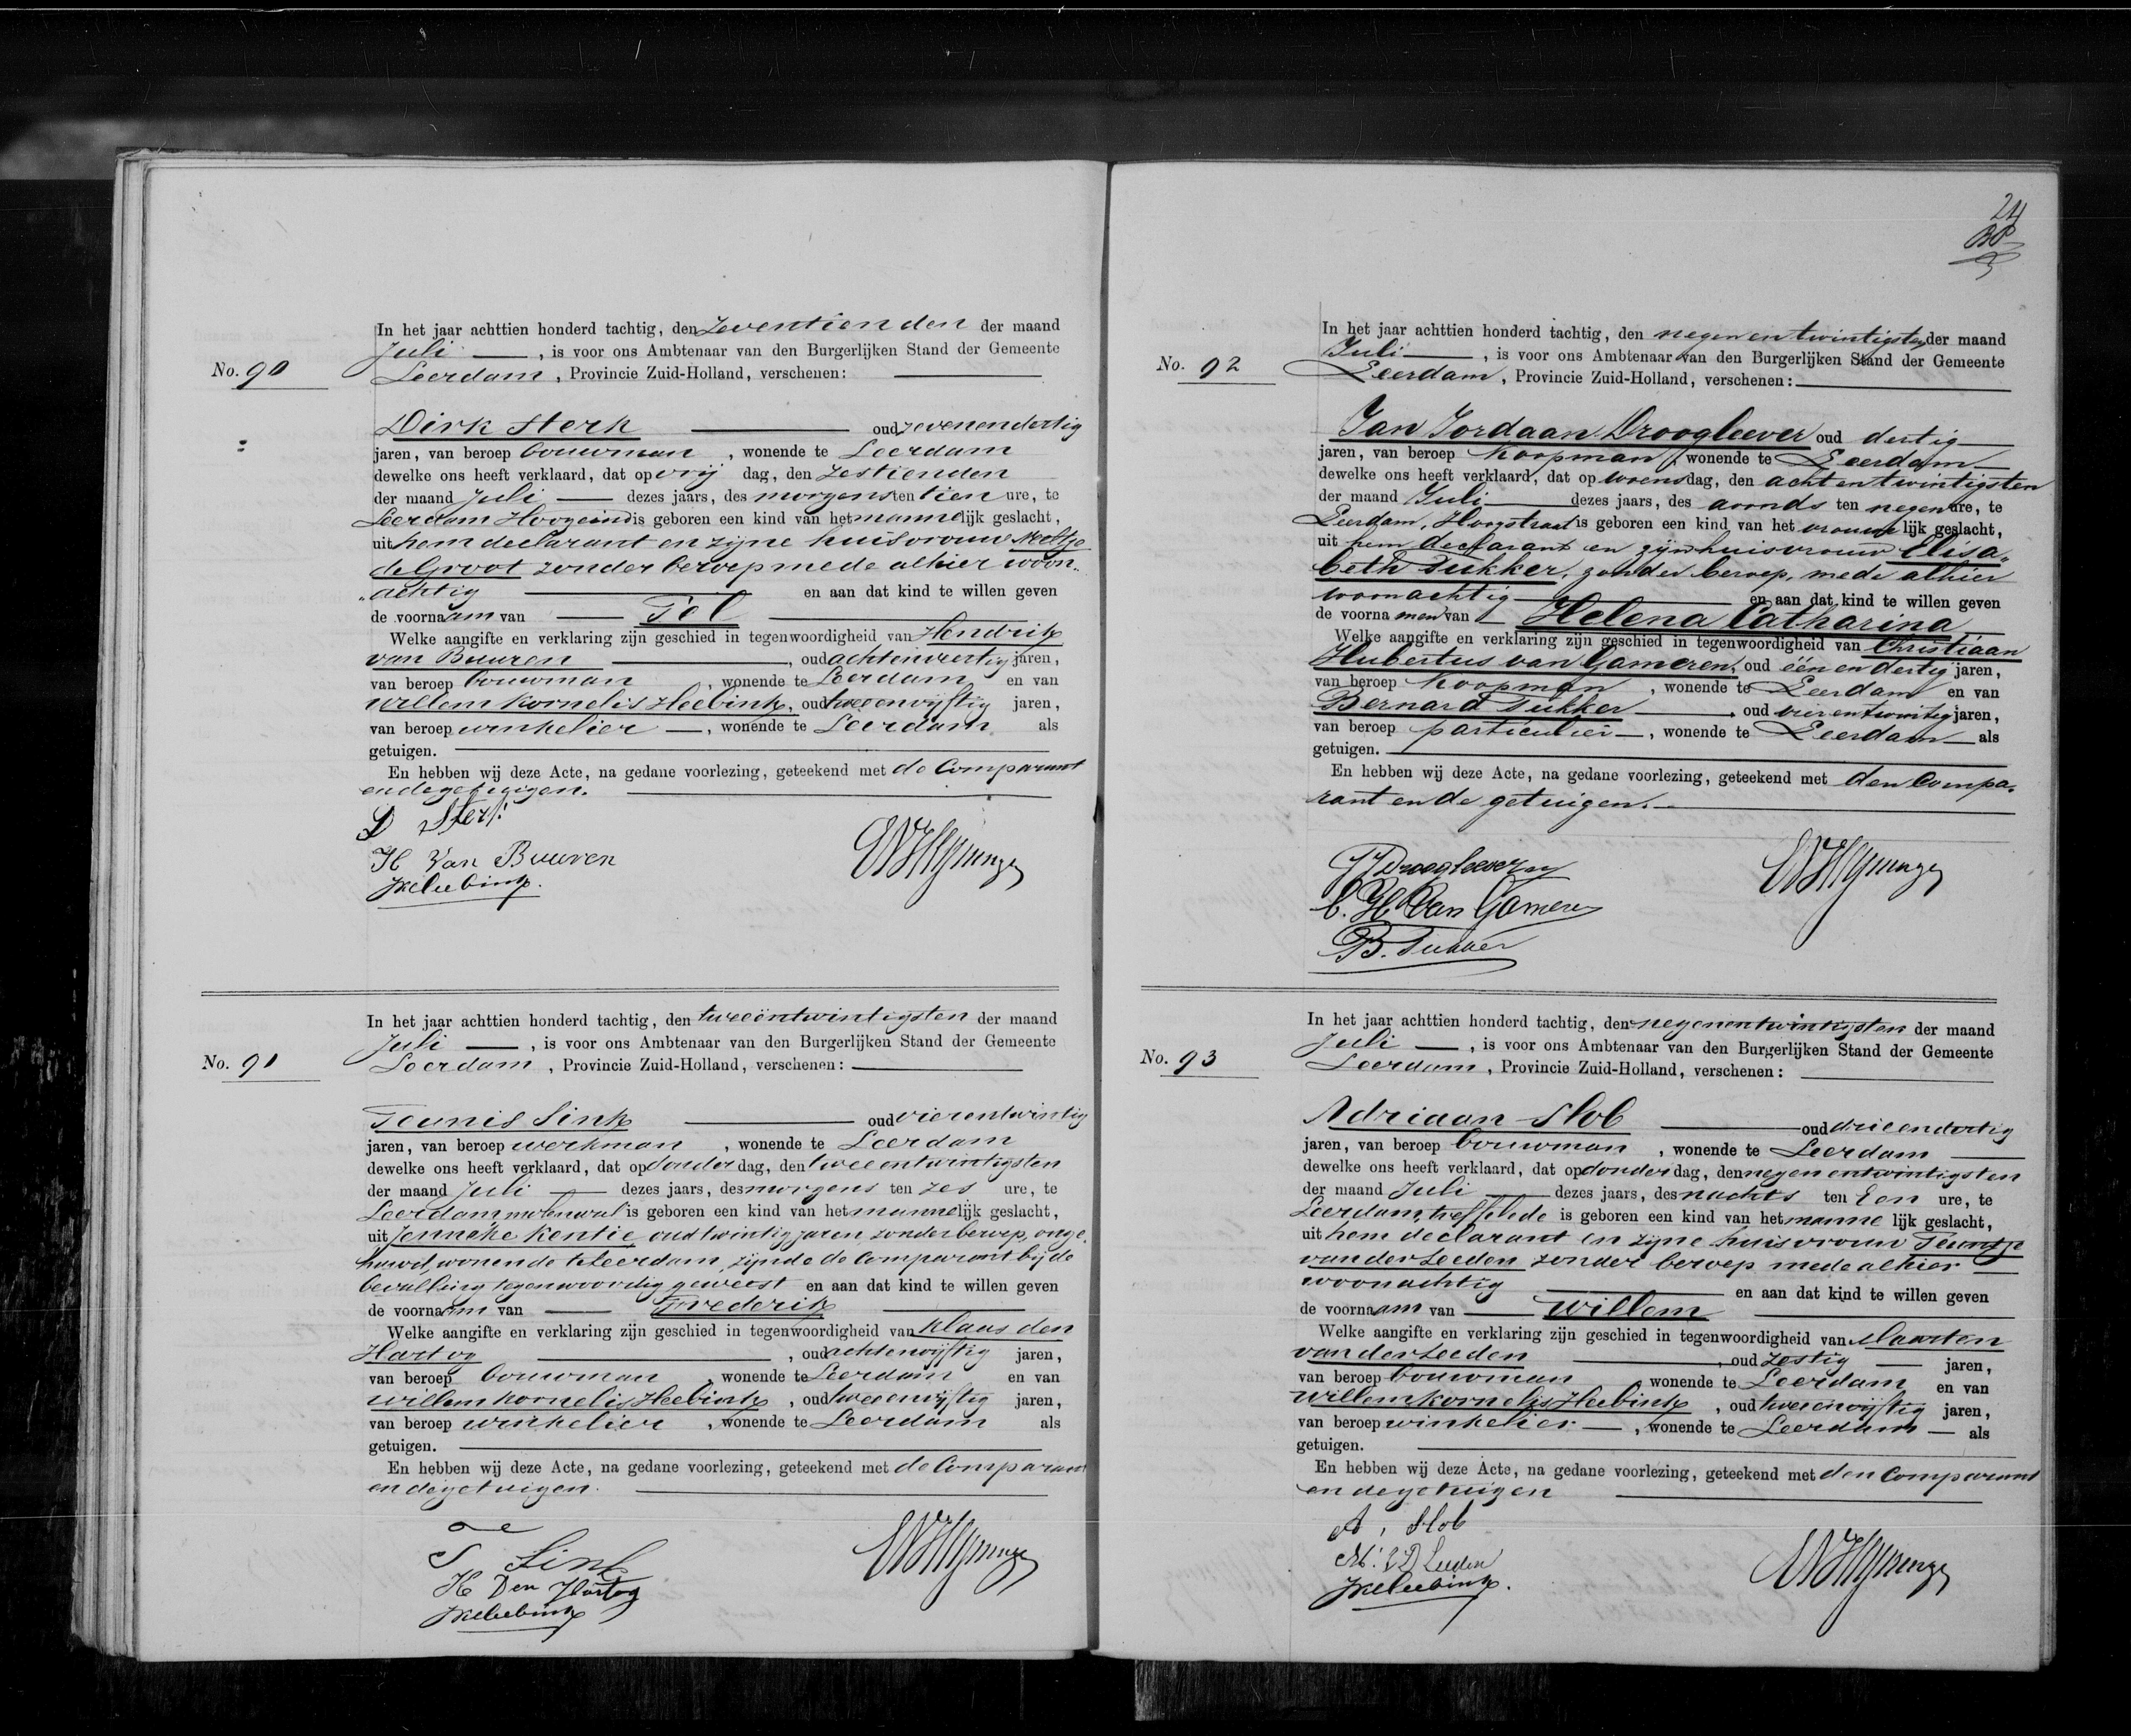 No. 90
In het jaar achttien honderd tachtig, den zeventienden der maand
Juli —, is voor ons Ambtenaar van den Burgerlijken Stand der Gemeente
Leerdam, Provincie Zuid-Holland, verschenen: —
Dirk Sterk — oud zevenendertig
jaren, van beroep bouwman, wonende te Leerdam
dewelke ons heeft verklaard, dat op vrij dag, den zestienden
der maand Juli — dezes jaars, des morgens ten tien ure, te
Leerdam Hoogeind is geboren een kind van het mannelijk geslacht,
uit hem declarant en zijne huisvrouw Neeltje
de Groot zonder beroep mede alhier woon„
„achtig — en aan dat kind te willen geven
de voornaam van — Tol —
Welke aangifte en verklaring zijn geschied in tegenwoordigheid van Hendrik
van Buuren —, oud achtenveertig jaren,
van beroep bouwman, wonende te Leerdam en van
Willem Kornelis Heebink, oud tweeenvijftig jaren,
van beroep winkelier —, wonende te Leerdam als
getuigen. —
En hebben wij deze Acte, na gedane voorlezing, geteekend met de Comparant
en de getuigen. —
D Sterk
H Van Buuren
WKHeebink.
No. 91
In het jaar achttien honderd tachtig, den tweeëntwintigsten der maand
Juli —, is voor ons Ambtenaar van den Burgerlijken Stand der Gemeente
Leerdam, Provincie Zuid-Holland, verschenen: —
Teunis Sink — oud vierentwintig
jaren, van beroep werkman, wonende te Leerdam
dewelke ons heeft verklaard, dat op donder dag, den tweeentwintigsten
der maand Juli — dezes jaars, des morgens ten zes ure, te
Leerdam molenwal is geboren een kind van het mannelijk geslacht,
uit Jenneke Kentie oud twintig jaren, zonder beroep, onge„
huwd, wonende te Leerdam, zijnde de Comparant bij de
bevalling tegenwoordig geweest en aan dat kind te willen geven
de voornaam van — Frederik —
Welke aangifte en verklaring zijn geschied in tegenwoordigheid van Klaas den
Hartog —, oud achtenvijftig jaren,
van beroep bouwman, wonende te Leerdam en van
Willem Kornelis Heebink, oud tweeenvijftig jaren,
van beroep winkelier, wonende te Leerdam als
getuigen. —
En hebben wij deze Acte, na gedane voorlezing, geteekend met de Comparant
en de getuigen. —
T Sink
K Den Hartog
WKHeebink
24
No. 92
In het jaar achttien honderd tachtig, den negenentwintigsten der maand
Juli —, is voor ons Ambtenaar van den Burgerlijken Stand der Gemeente
Leerdam, Provincie Zuid-Holland, verschenen: —
Jan Jordaan Droogleever oud dertig —
jaren, van beroep Koopman, wonende te Leerdam —
dewelke ons heeft verklaard, dat op woensdag, den achtentwintigsten
der maand Juli — dezes jaars, des avonds ten negen ure, te
Leerdam, Hoogstraat is geboren een kind van het vrouwelijk geslacht,
uit hem declarant en zijne huisvrouw Elisa„
beth Tukker, zonder beroep, mede alhier
woonachtig — en aan dat kind te willen geven
de voornamen van Helena Catharina
Welke aangifte en verklaring zijn geschied in tegenwoordigheid van Christiaan
Hubertus van Gameren, oud één en dertig jaren,
van beroep Koopman, wonende te Leerdam en van
Bernard Tukker —, oud vierentwintig jaren,
van beroep particulier —, wonende te Leerdam — als
getuigen. —
En hebben wij deze Acte, na gedane voorlezing, geteekend met den Compa„
rant en de getuigen. —
JJDroogleever
C. H. Van Gameren
B. Tukker
No. 93
In het jaar achttien honderd tachtig, den negenentwintigsten der maand
Juli —, is voor ons Ambtenaar van den Burgerlijken Stand der Gemeente
Leerdam, Provincie Zuid-Holland, verschenen: —
Adriaan Slob — oud drieendertig
jaren, van beroep bouwman, wonende te Leerdam —
dewelke ons heeft verklaard, dat op donder dag, den negenentwintigsten
der maand Juli — dezes jaars, des nachts ten Een ure, te
Leerdam, is geboren een kind van het mannelijk geslacht,
uit hem declarant en zijne huisvrouw Teuntje
van der Leeden zonder beroep mede alhier —
woonachtig — en aan dat kind te willen geven
de voornaam van — Willem —
Welke aangifte en verklaring zijn geschied in tegenwoordigheid van Maarten
van der Leeden —, oud zestig — jaren,
van beroep bouwman, wonende te Leerdam en van
Willem Kornelis Heebink, oud tweeenvijftig jaren,
van beroep winkelier —, wonende te Leerdam — als
getuigen. —
En hebben wij deze Acte, na gedane voorlezing, geteekend met den Comparant
en de getuigen —
A. Slob
M. v D Leeden
WKHeebink.